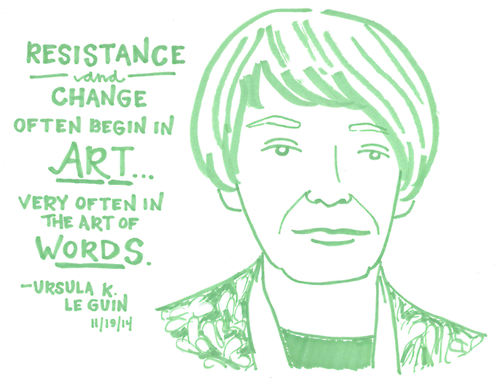 RESISTANCE
and
CHANGE
OFTEN BEGIN IN
ART...
VERY OFTEN IN
THE ART OF
WORDS.
-URSULA K.
LE GUIN
11/19/14